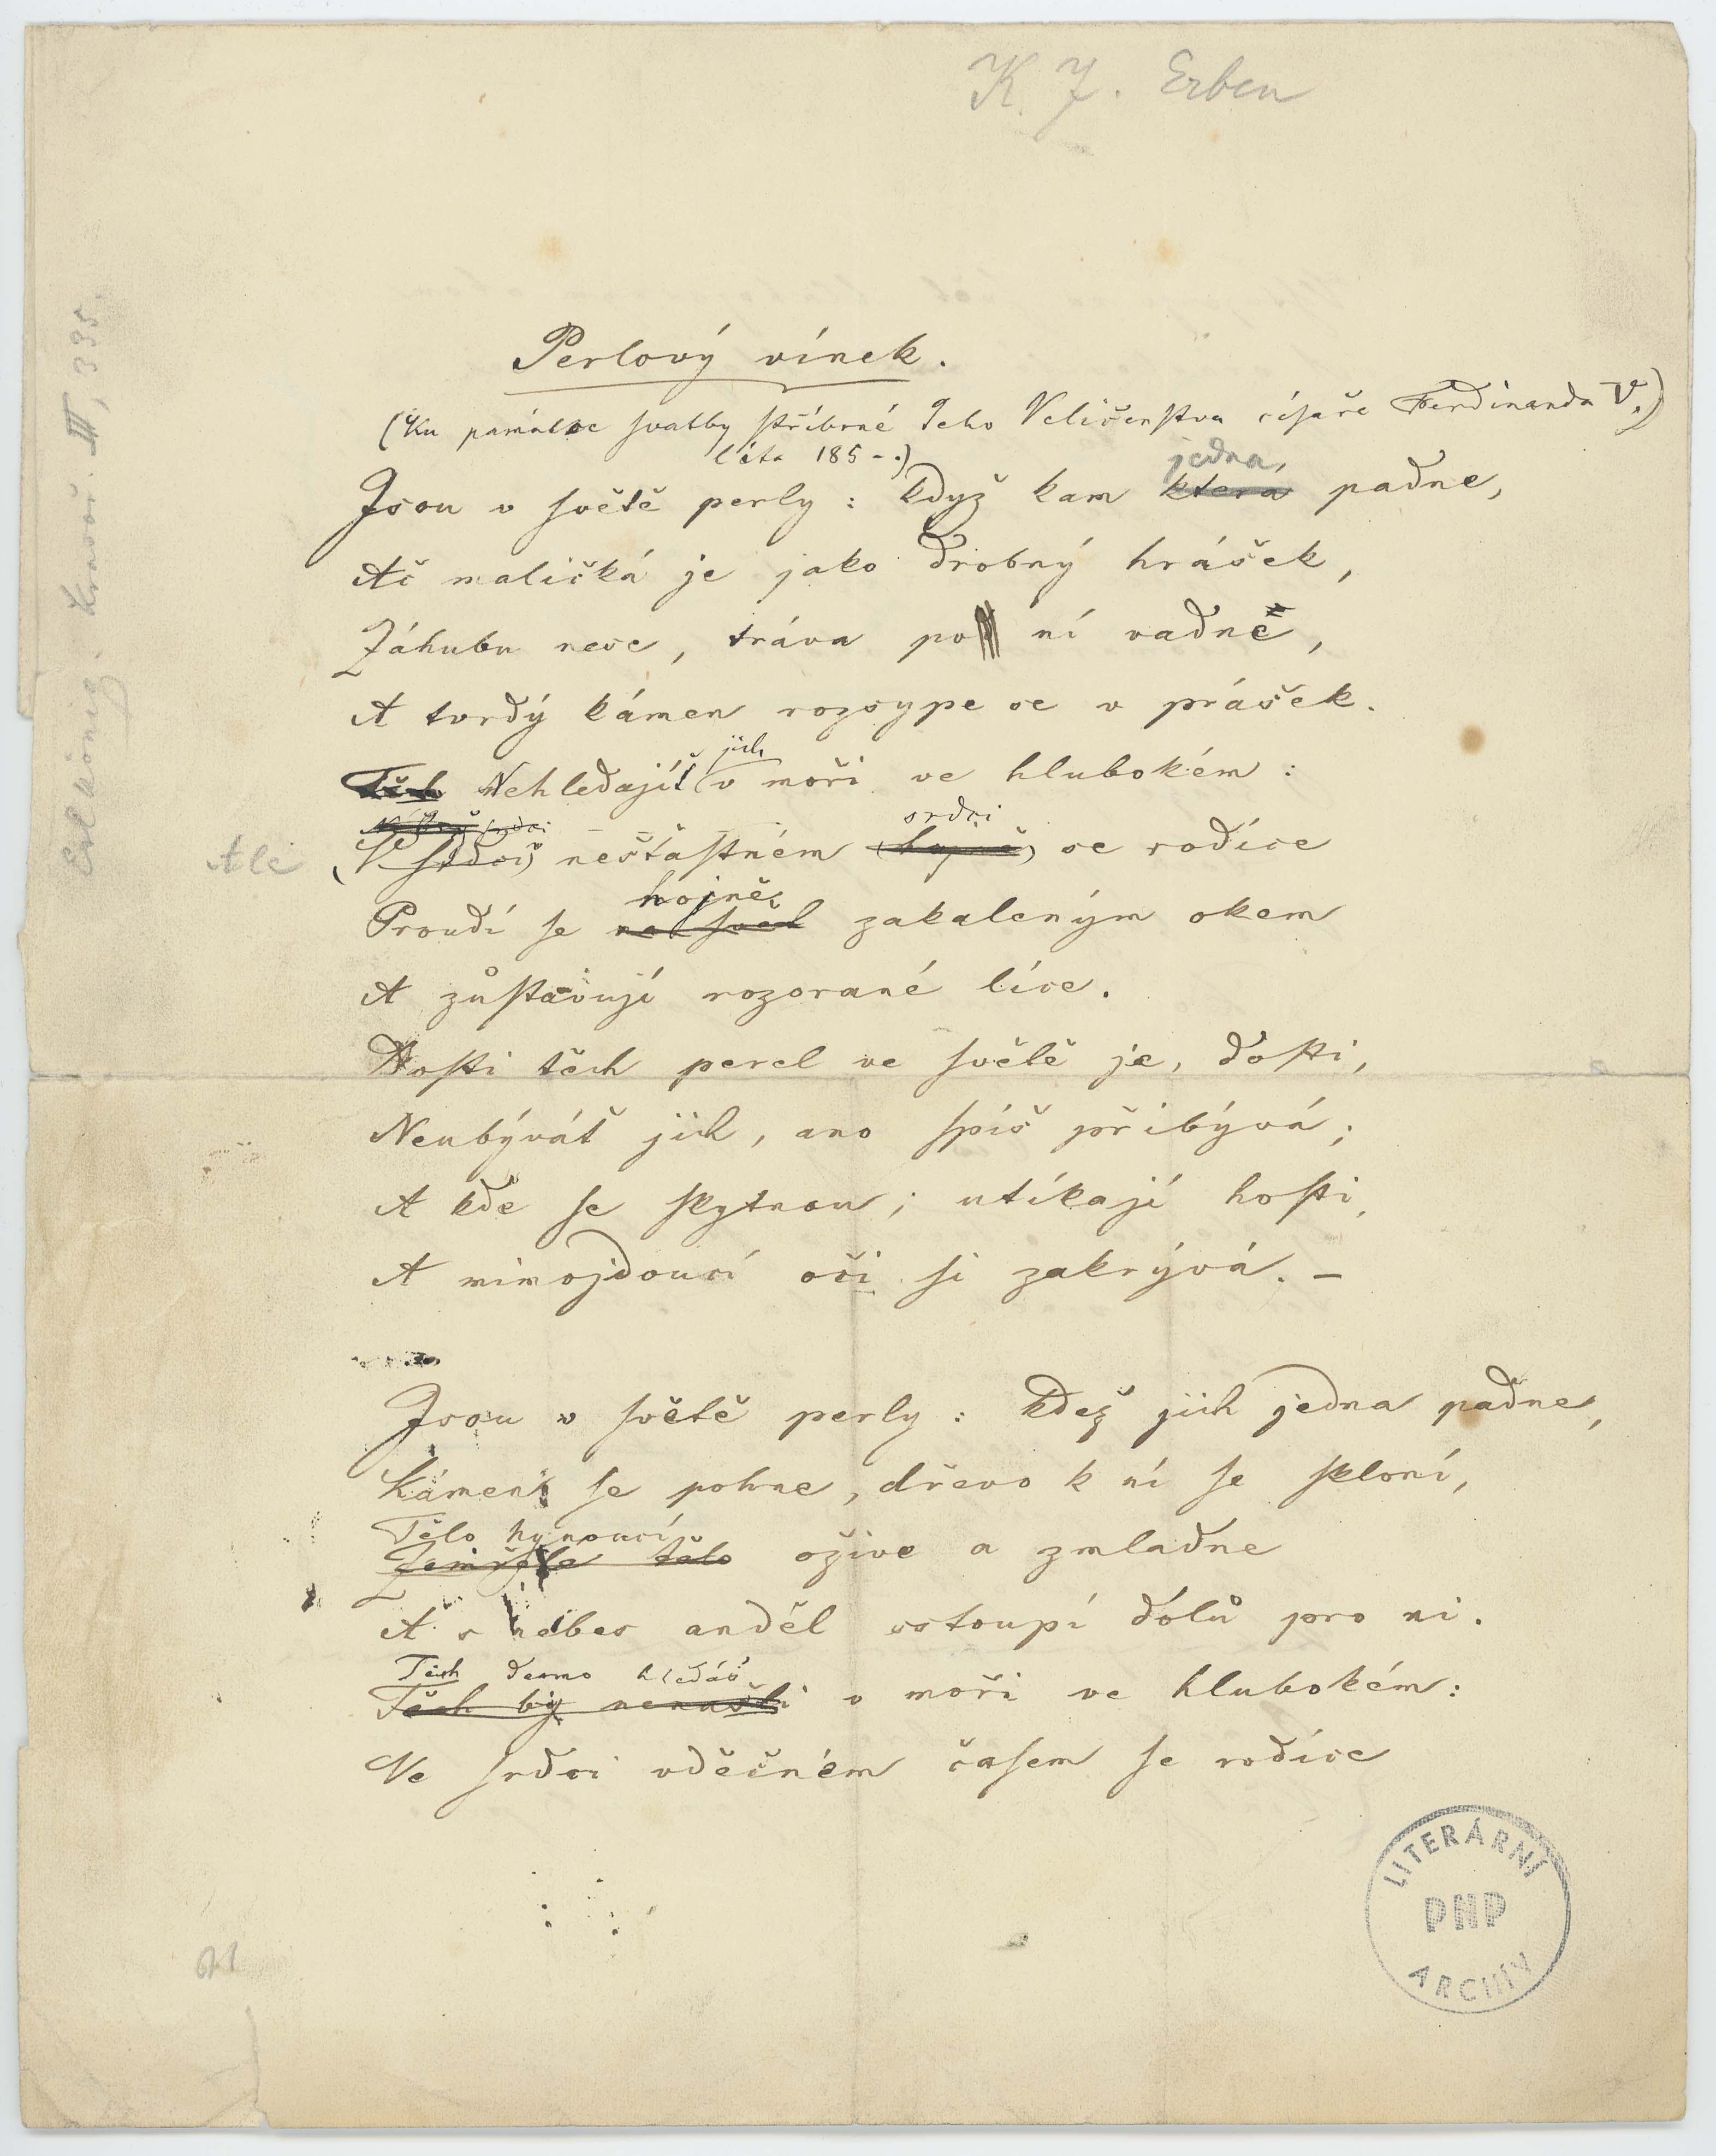 K. J. Erben
Perlový vínek.
(Ku památce svatby stříbrné Jeho Veličenstva císaře Ferdinanda V.)
léta 185-.)
jedna,
Jsou v světě perly: když kam která padne,
Ač maličká je jako drobný hrášek,
Záhubu nese, tráva po ní vadne,
A tvrdý kámen rozsype se v prášek.
jich
Těch Nehledejíť v moři ve hlubokém:
srdci
Ale
Ve srdci nešťastném hojně se rodíce
hojně
Proudí se na svět zakaleným okem
A zůstavují rozorané líce.
Dosti těch perel ve světě je, dosti,
Neubýváť jich, ano spíš přibývá;
A kde se skytnou; utíkají hosti,
A mimojdoucí oči si zakrývá. –
Jsou v světě perly: kdež jich jedna padne,
Kámen se pohne, dřevo k ní se skloní,
Tělo hynoucí
Zemřelé tělo ožive a zmladne
A s nebes anděl sstoupí dolů pro ni.
Těch darmo hledáš
Těch by nenašli v moři ve hlubokém:
Ve srdci vděčném časem se rodíce
Erlkönig. Krasoř. III, 335.
LITERÁRNÍ
PNP
ARCHIV